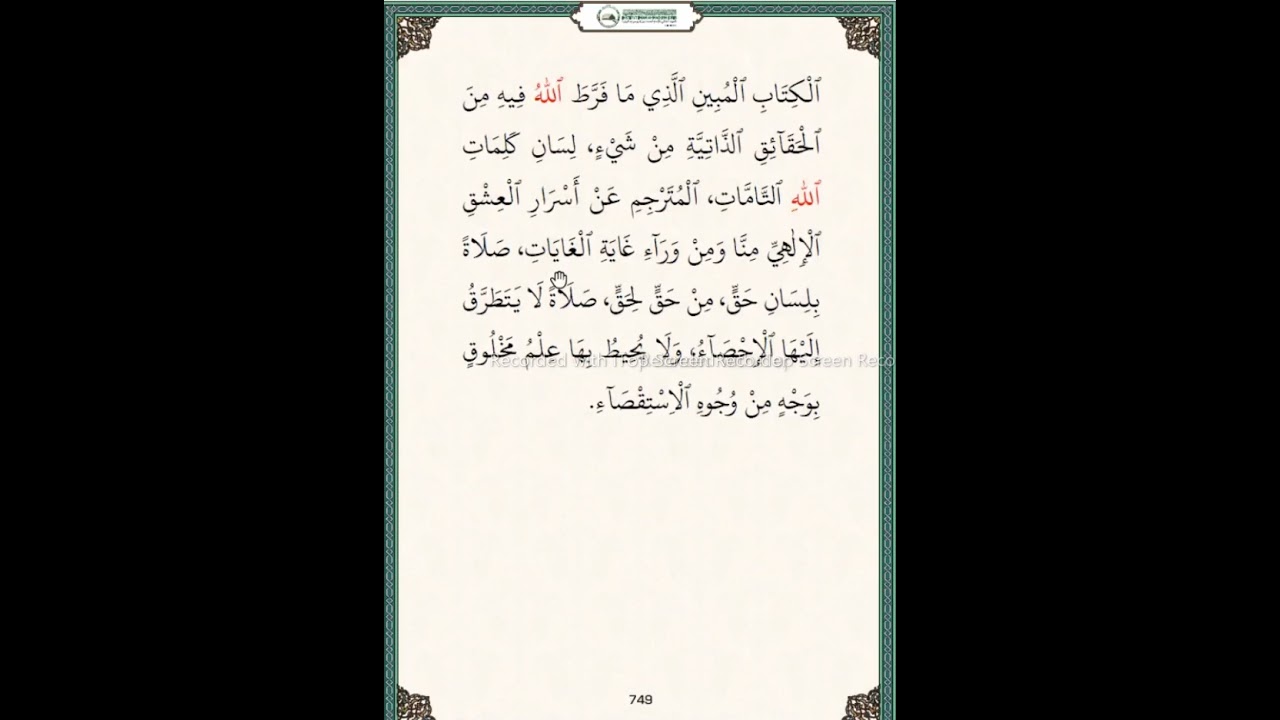 ٱلْكِتَابِ ٱلْمُبِينِ ٱلَّذِي مَا فَرَّطَ ٱللهُ فِيهِ مِنَ
ٱلْحَقَآئِقِ ٱلذَّاتِيَّةِ مِنْ شَيْءٍ، لِسَانِ كَلِمَاتِ
ٱللهِ ٱلتَّامَّاتِ، ٱلْمُتَرْجِمِ عَنْ أَسْرَارِ ٱلْعِشْقِ
ٱلْإِلٰهِيِّ مِنَّا وَمِنْ وَرَآءِ غَايَةِ ٱلْغَايَاتِ، صَلَاةً
بِلِسَانِ حَقٍّ، مِنْ حَقٍّ لِحَقٍّ، صَلَاةً لَا يَتَطَرَّقُ
إِلَيْهَا ٱلْإِحْصَآءُ، وَلَا يُحِيطُ بِهَا عِلْمُ مَخْلُوقٍ
Recorded with Screen Recorder Screen Reco
بِوَجْهٍ مِنْ وُجُوهِ ٱلْاِسْتِقْصَآءِ.
749